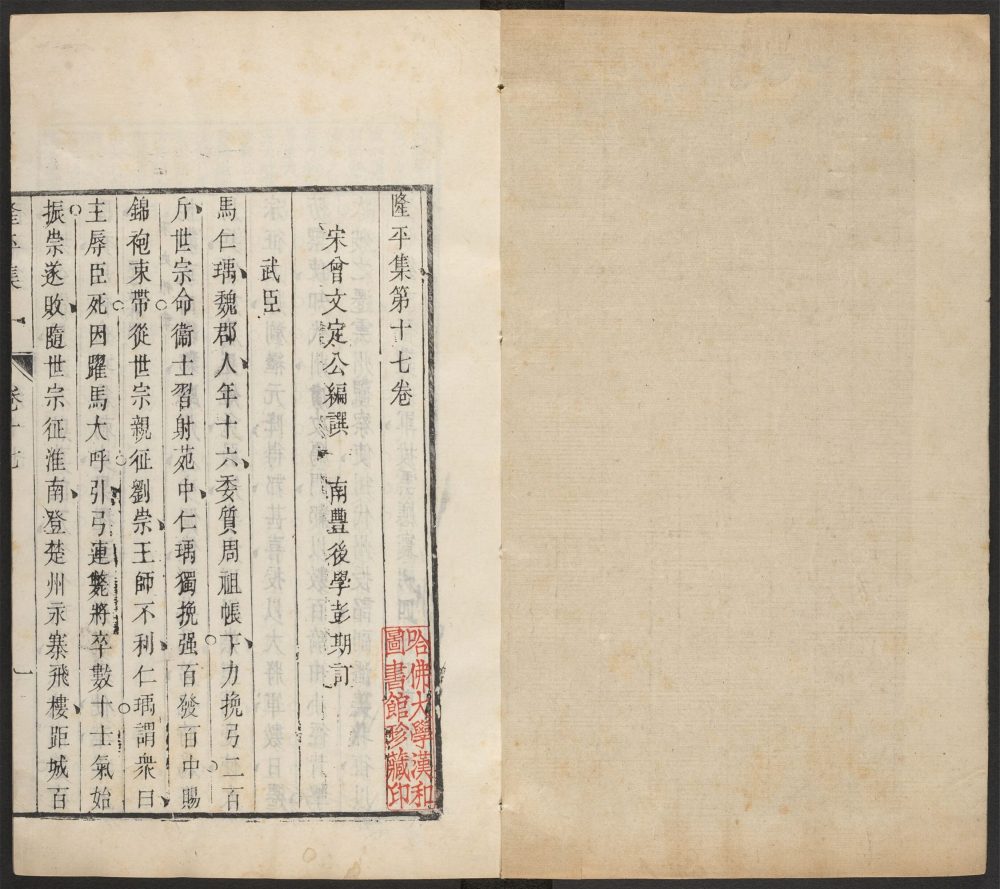 隆平集第十七卷
宋曾文定公編譔 南豐後學彭期訂
武臣
馬仁瑀魏郡人年十六委質周祖帳下力挽弓二百
斤世宗命衞士習射苑中仁瑀獨挽强百發百中賜
錦袍束帶從世宗親征劉崇王師不利仁瑀謂衆曰
主辱臣死因躍馬大呼引弓連斃將卒數十士氣始
振崇遂敗隨世宗征淮南登楚州水寨飛樓距城百
隆平集
卷十七
一
哈佛大學漢和
圖書館珍藏印